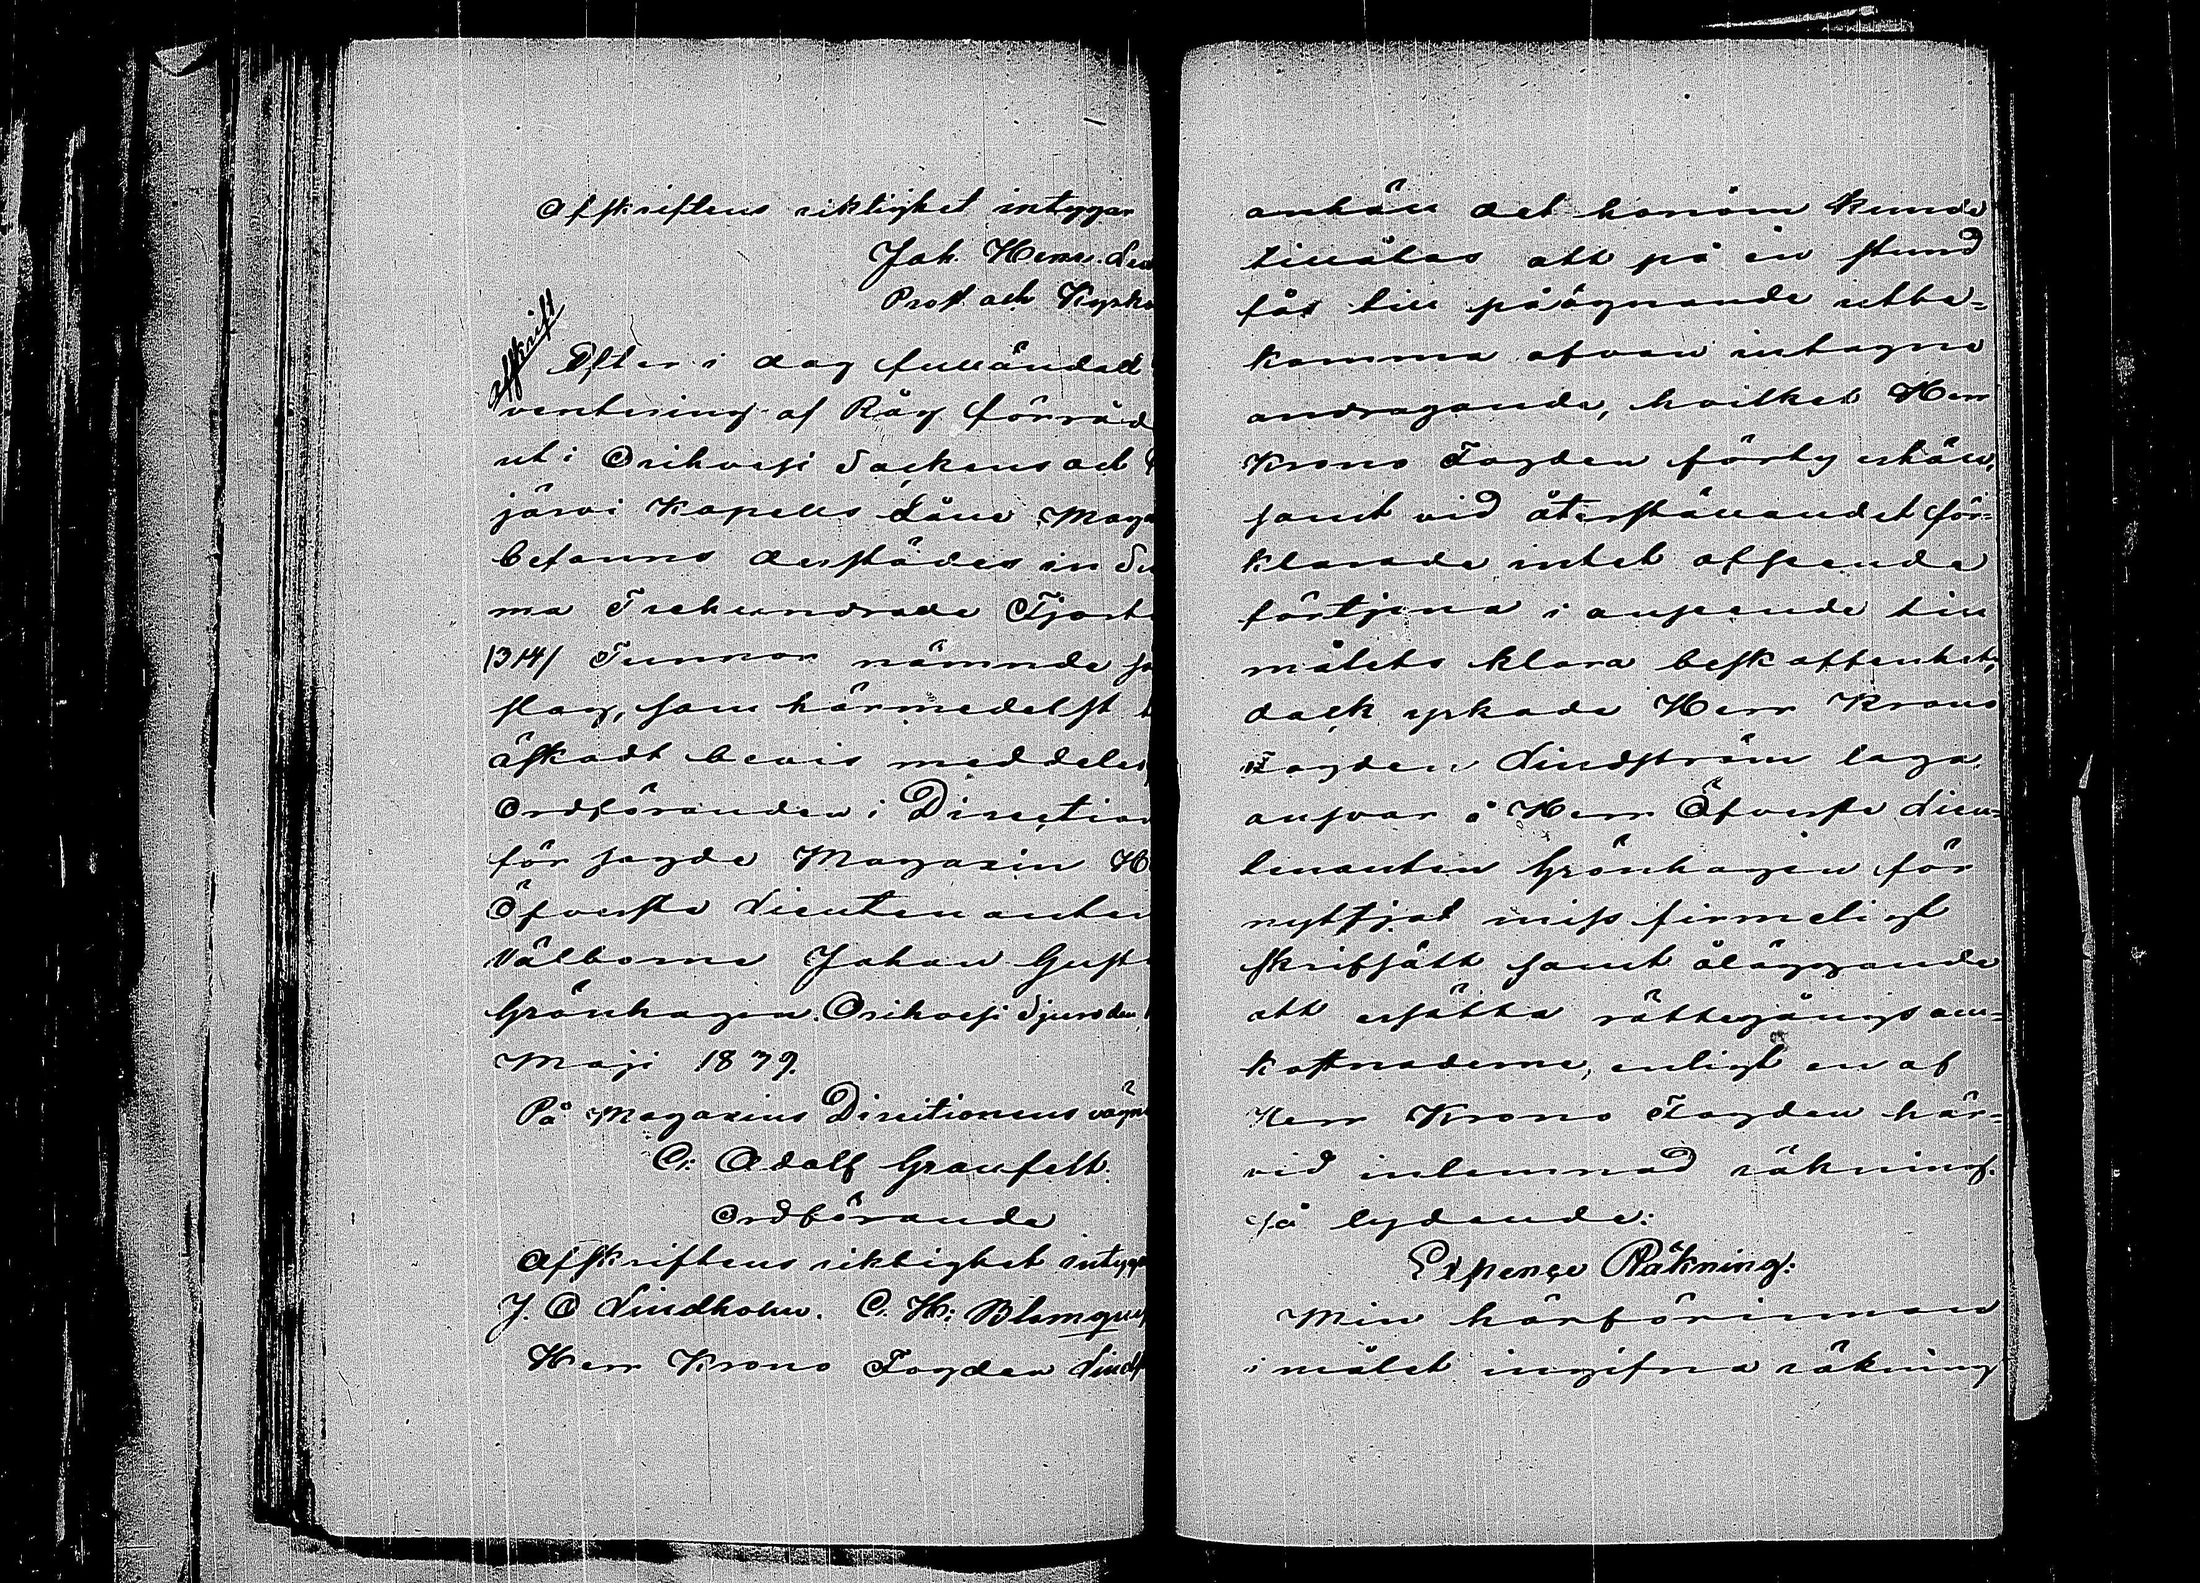 Afskriftens riktighet intygar
Joh. Henr.
Prost och Kyrko
Afskrift
Efter i dag fulländad
ventering af Råg förråd
ut i Orihvesi Sockens och
järvi Kapells Låne Maga
befanns derstädes in Su
ma Trehundrade Fjort
/314/ Tunnor nämnde
slag, som härmedelst
äskadt bevis meddelas
Ordföranden i Direction
för sagde Magazin H
Öfverste Lieutenanten
Välborne Johan Gust
Grönhagen. Orihvesi Djuro den
Maji 1839.
På Magazins Directionens vägn
C: Adolf Granfelt.
Ordförande
Afskriftens riktighet intyga
J. O Lindholm. C. H: Blomqui
Herr Krono Fogden Lind
anhöll det honom kunde
tillåtas att på en stund
få till påögnande utbe-
komma ofvan intagne
andragande, hvilket Herr
Krono Fogden förty erhöll,
samt vid återställandet för-
klarade intet afseende
förtjena i anseende till
målets klara beskaffenhet,
dock yrkade Herr Krono
Fogden Lindström laga
ansvar å Herr Öfverste Lieu-
tenanten Grönhagen för
nyttjat miss firmeligt
skrifsätt samt åläggande
att ersätta rättegångs om-
kostnaderne, enligt en af
Herr Krono Fogden här-
vid inlemnad räkning.
så lydande:
Expence Räkning:
Min härförinnan
i målet ingifna räkning